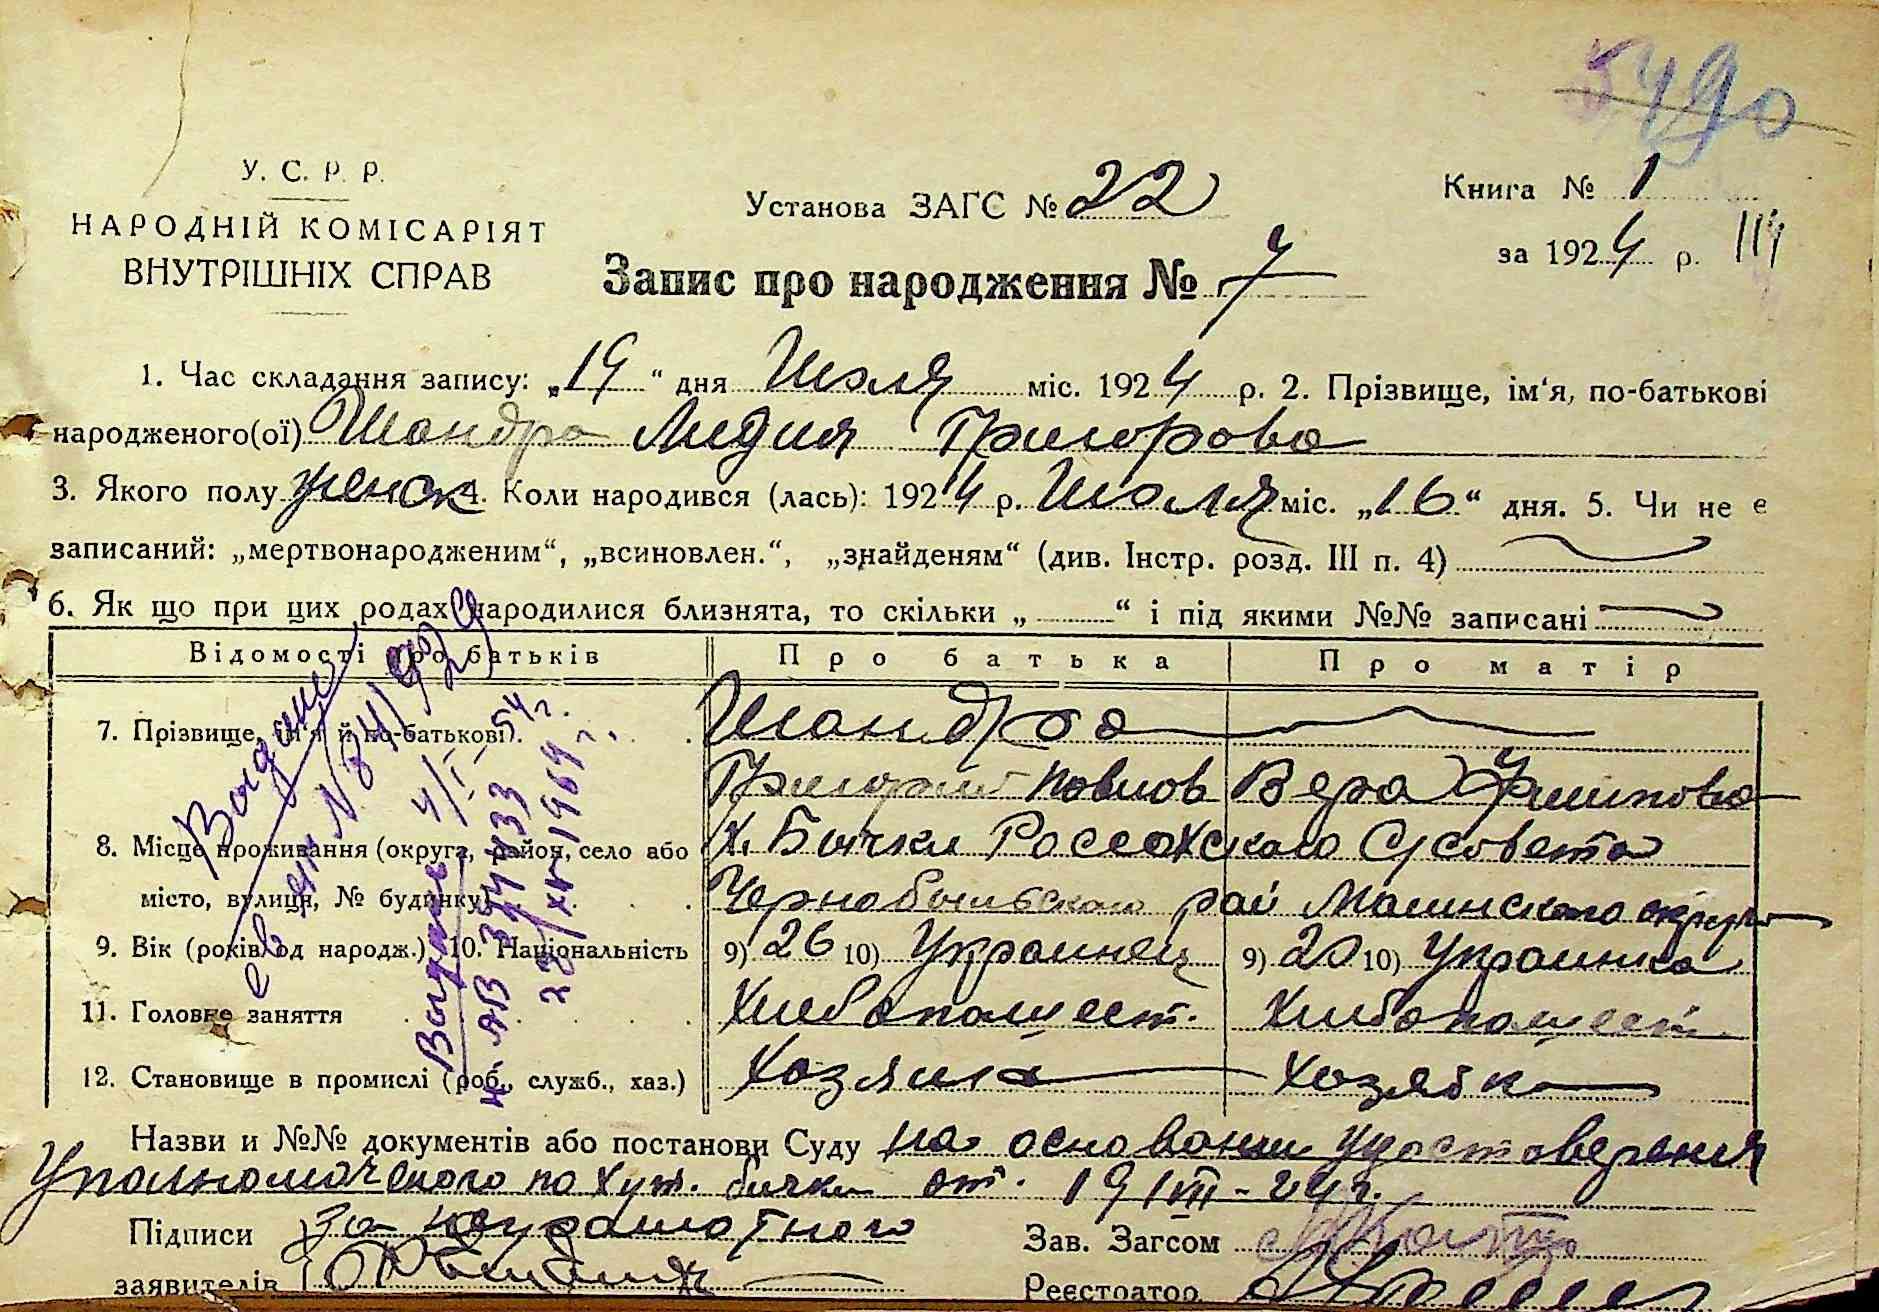 5490
У. С. Р. Р.
НАРОДНІЙ КОМІСАРІЯТ
ВНУТРІШНІХ СПРАВ
Установа ЗАГС № 22
Книга № 1
за 1924 р.
Запис про народження № 7
1. Час складання запису: „19“ дня Июля міс. 1924 р. 2. Прізвище, ім‘я, по-батькові
народженого(ої) Шандра Лидия Григорова
3. Якого полу женск 4. Коли народився (лась): 1924 р. Июля міс. „16“ дня. 5. Чи не є
записаний: „мертвонародженим“, „всиновлен.“, „знайденям“ (див. Інстр. розд. III п. 4)
6. Як що при цих родах народилися близнята, то скільки „ “ і під якими №№ записані
Відомості про батьків
Про батька
Про матір
7. Прізвище, ім'я й по-батькові
Шандра
Григорий Павлов
Вера Филипова
8. Місце проживання (округа, район, село або
місто, вулиця, № будинку)
х. Бички Россохского С/совета
Чернобыльского рай Малинского округа
9. Вік (років од народж.) 10. Національність
9) 26 10) Украинец
9) 20 10) Украинка
11. Головне заняття
Хлебопашест.
Хлебопашест.
12. Становище в промислі (роб., служб., хаз.)
Хозяин
Хозяйка
Выдано
4/I-54 г.
Выдано
28/XI 1969 г.
Назви и №№ документів або постанови Суду на основании удостоверения
Уполномоченого по Хут. бички от. 19/VII-24 г.
Підписи За неграмотного
заявителів
Зав. Загсом
Реєстратор